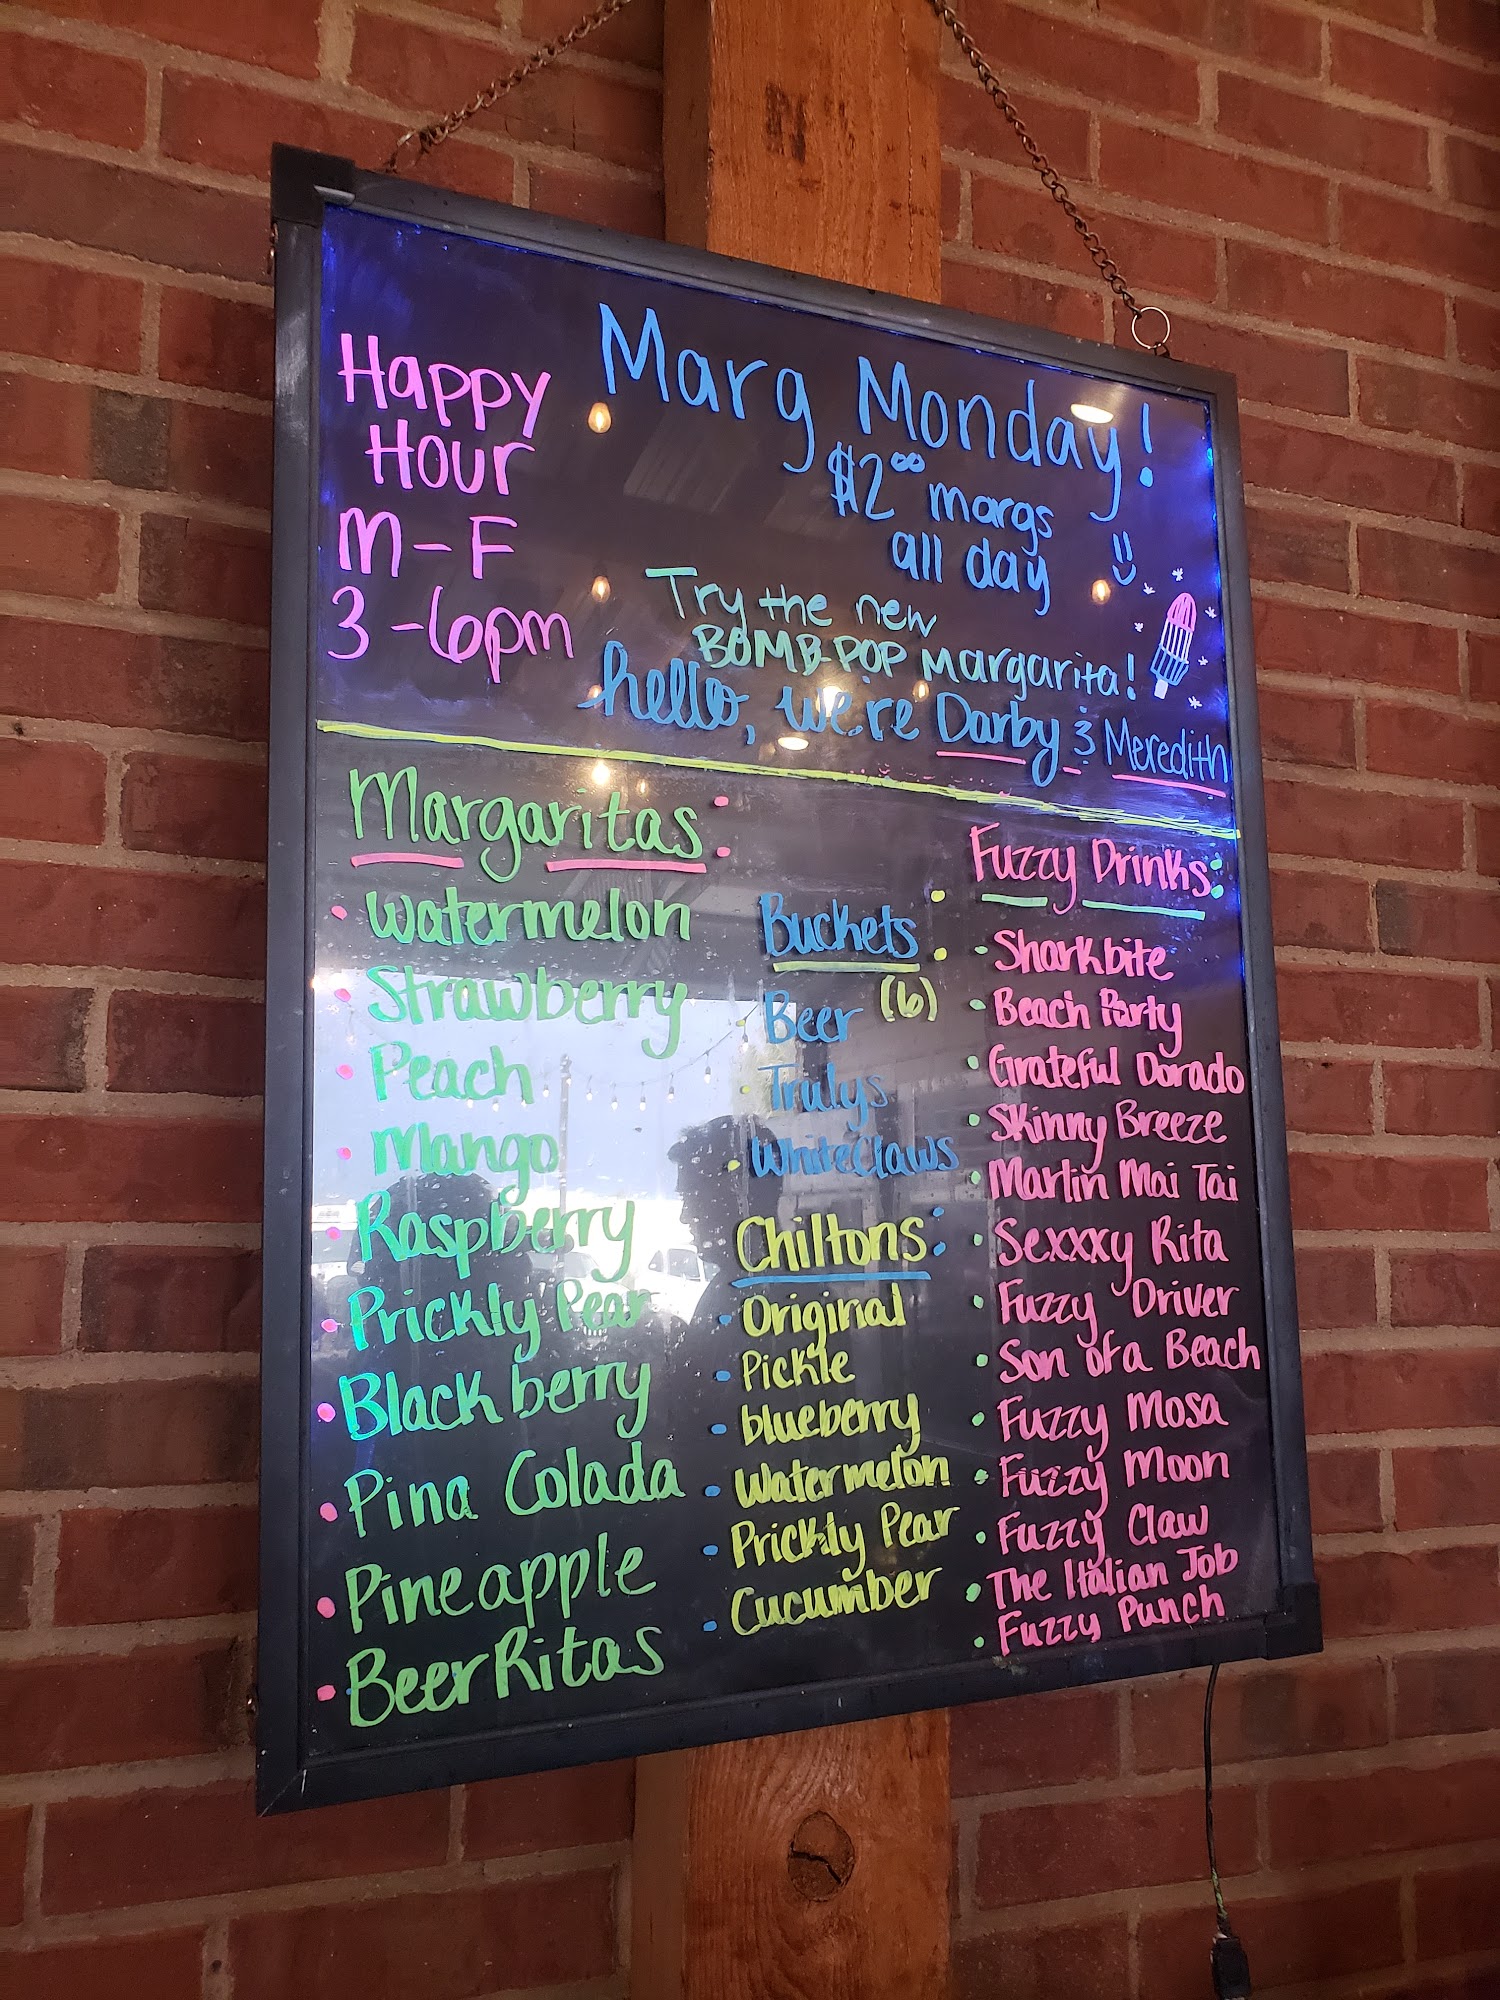 Happy
Hour
M-F
3-6pm
Marg Monday!
$2.00 margs
all day
Try the new
BOMB POP margarita!
hello, we're Darby & Meredith
Margaritas:
Watermelon
Strawberry
Peach
Mango
Raspberry
Prickly Pear
Blackberry
Pina Colada
Pineapple
BeerRitas
Buckets:
(6)
Beer
Trulys
WhiteClaws
Chiltons:
Original
Pickle
blueberry
Watermelon
Prickly Pear
Cucumber
Fuzzy Drinks:
Sharkbite
Beach Party
Grateful Dorado
Skinny Breeze
Marlin Mai Tai
Sexxxy Rita
Fuzzy Driver
Son of a Beach
Fuzzy Mosa
Fuzzy Moon
Fuzzy Claw
The Italian Job
Fuzzy Punch